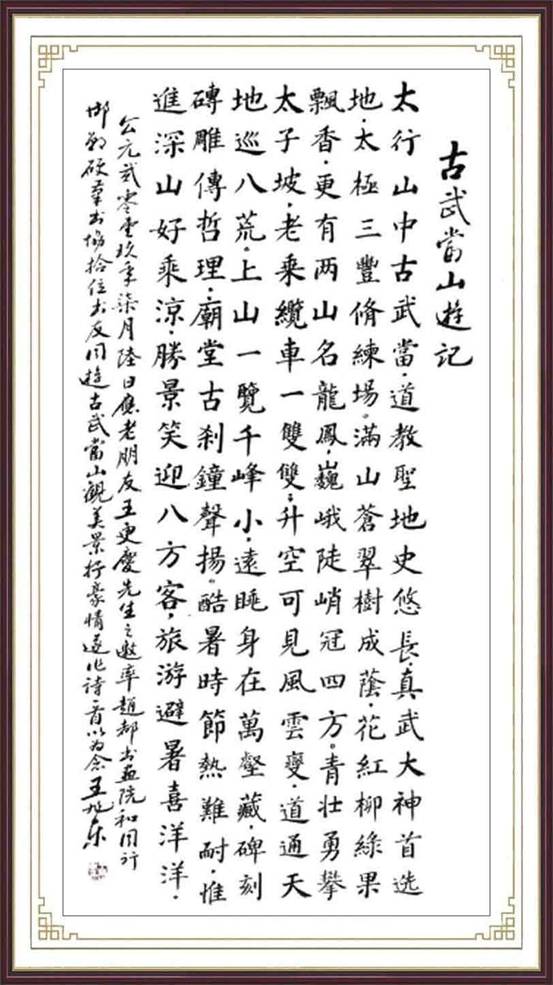 古武當山遊记
太行山中古武當，道教聖地史悠長，真武大神首选
地，太極三豐脩練場。滿山蒼翠樹成蔭，花紅柳綠果
飄香，更有两山名龍鳳，巍峨陡峭冠四方。青壮勇攀
太子坡，老乘纜車一雙雙；升空可見風雲變，道通天
地巡八荒。上山一覽千峰小，遠眺身在萬壑藏，碑刻
磚雕傳哲理，廟堂古刹鐘聲揚。酷暑時節熱難耐，惟
進深山好乘涼，勝景笑迎八方客，旅游避暑喜洋洋。
公元贰零壹玖年柒月陸日應老朋友王更慶先生之邀率趙都书画院和同行
邯郸硬筆书協拾位书友同遊古武當山觀美景抒豪情遂作詩一首以为念王旭东